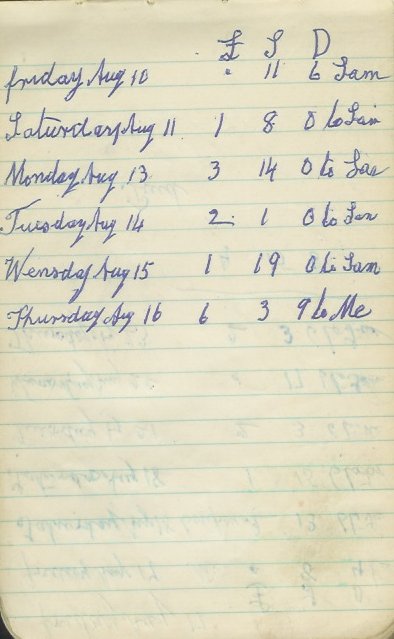 £ S D
friday Aug 10 " 11 6 Sam
Saturday Aug 11 1 8 0 to Sam
Monday Aug 13 3 14 0 to Sam
Tuesday Aug 14 2 1 0 to Sam
Wensday Aug 15 1 19 0 to Sam
Thursday Aug 16 6 3 9 to Me